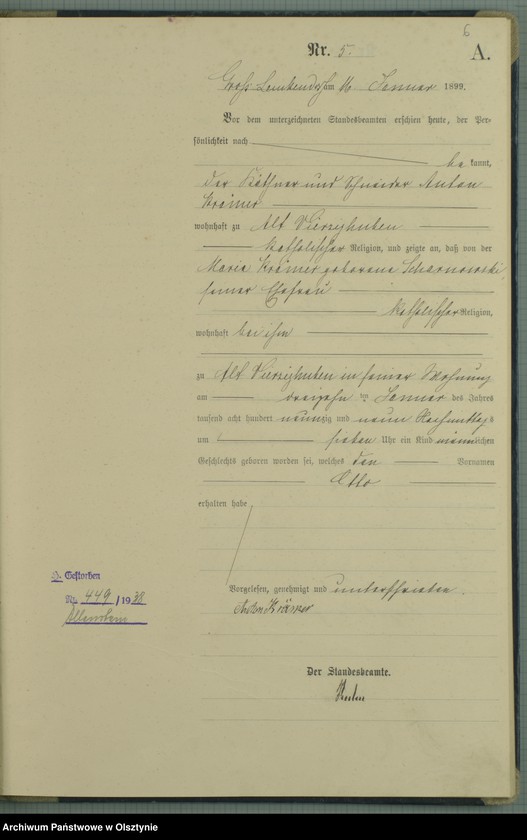 6
Nr. 5.
A.
Groß Lemkendorf am 16 Januar 1899.
Vor dem unterzeichneten Standesbeamten erschien heute, der Per-
sönlichkeit nach
be kannt,
der Käthner und Schneider Anton
Krämer
wohnhaft zu Alt Vierzighuben
katholischer Religion, und zeigte an, daß von der
Maria Krämer geborene Scharnowski,
seiner Ehefrau
katholischer Religion,
wohnhaft bei ihm
zu Alt Vierzighuben in seiner Wohnung
am dreizehn ten Januar des Jahres
tausend acht hundert neunzig und neun Nachmittags
um sieben Uhr ein Kind männlichen
Geschlechts geboren worden sei, welches den Vornamen
Otto
erhalten habe
Vorgelesen, genehmigt und unterschrieben.
Anton Krämer
Gestorben
Nr. 449 / 1938
Allenstein
Der Standesbeamte.
Archiwum Państwowe w Olsztynie